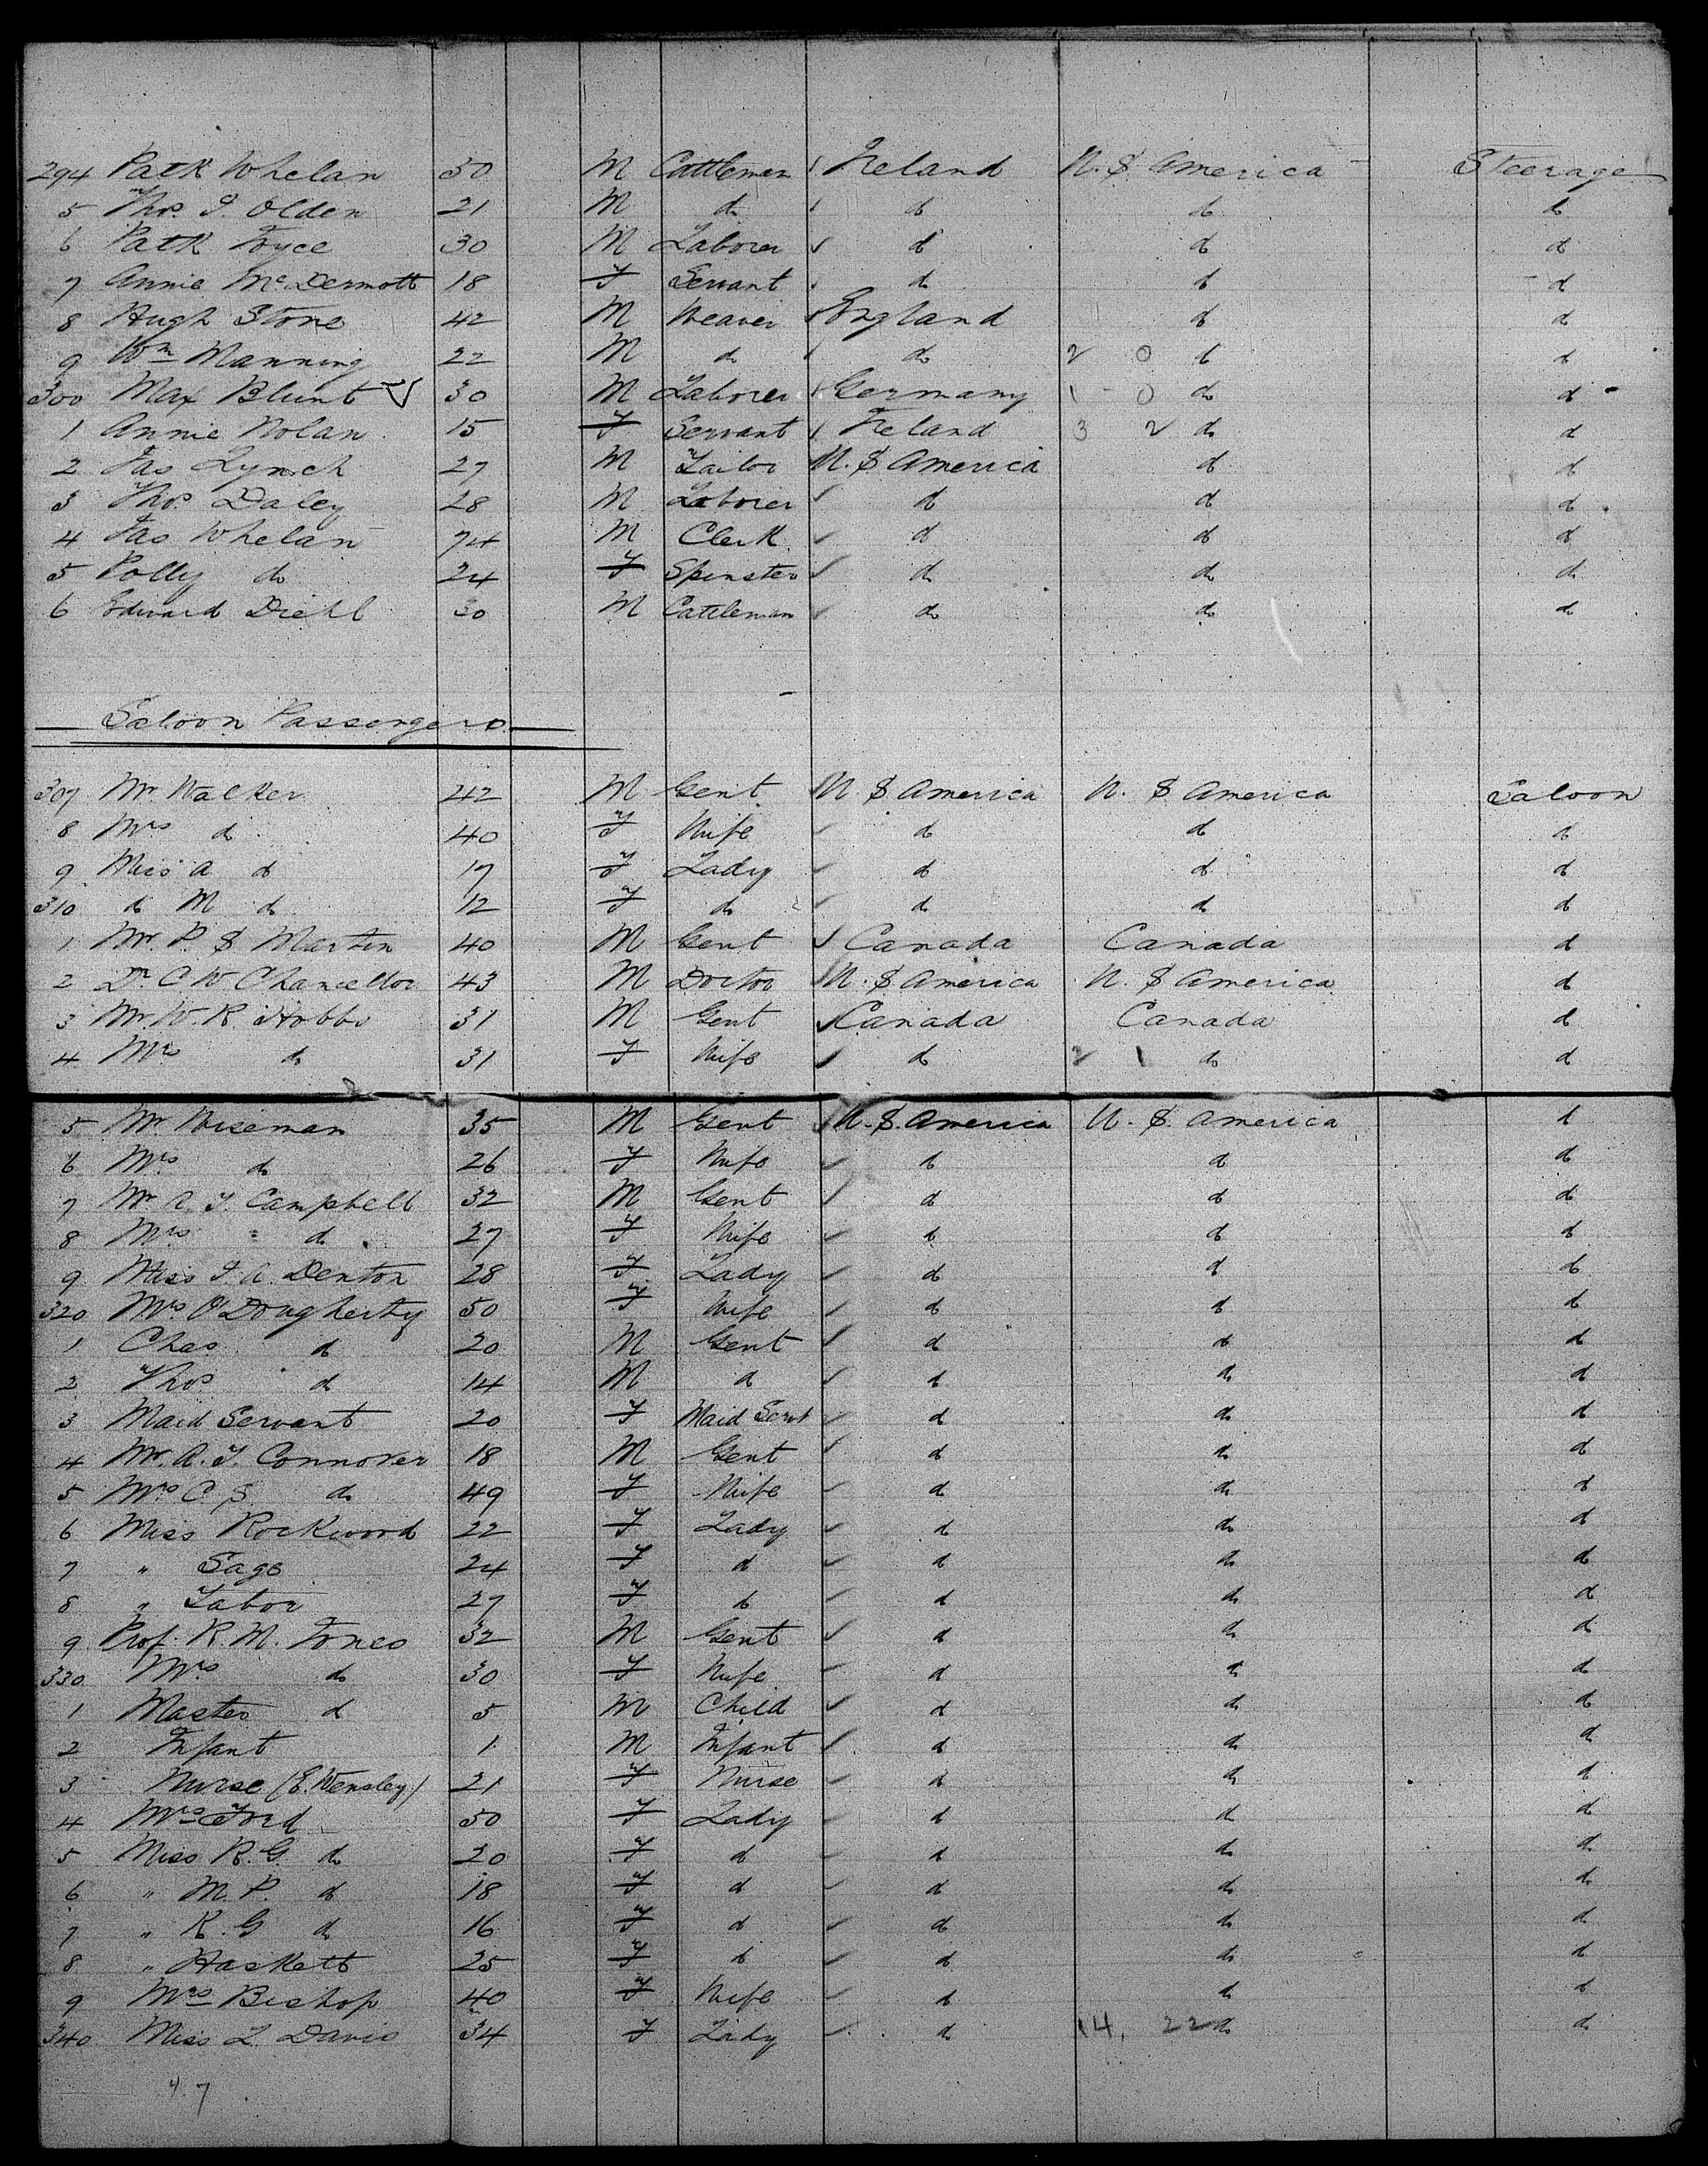 294 Patk Whelan 30 M Cattleman Ireland U.S. America Steerage
5 Thos. J. Olden 21 M do do do do
6 Patk Joyce 30 M Laborer do do do
7 Annie McDermott 18 F Servant do do do
8 Hugh Stone 42 M Weaver England do do
9 Wm Manning 22 M do do 2 0 do do
300 Max Blunt 30 M Laborer Germany 1 0 do do
1 Annie Nolan 15 F Servant Ireland 3 2 do do
2 Jas Lynch 27 M Tailor U.S America do do
3 Thos. Daley 28 M Laborer do do do
4 Jas Whelan 74 M Clerk do do do
5 Polly do 24 F Spinster do do do
6 Edward Diehl 30 M Cattleman do do do
Saloon Passengers
307 Mr. Walker 42 M Gent U.S America U.S America Saloon
8 Mrs do 40 F Wife do do do
9 Miss A do 17 F Lady do do do
310 do M do 12 F do do do do
1 Mr. P S Martin 40 M Gent Canada Canada do
2 Dr. C W Chancellor 43 M Doctor U.S America U.S America do
3 Mr. W. R Hobbs 31 M Gent Canada Canada do
4 Mrs do 31 F Wife do 2 1 do do
5 Mr Wiseman 35 M Gent U.S. America U.S. America do
6 Mrs do 26 F Wife do do do
7 Mr. A. F. Campbell 32 M Gent do do do
8 Mrs " do 27 F Wife do do do
9 Miss J. A. Denton 28 F Lady do do do
320 Mrs O'Dougherty 50 F Wife do do do
1 Chas do 20 M Gent do do do
2 Thos do 14 M do do do do
3 Maid Servant 20 F Maid Servt do do do
4 Mr. A. F. Connover 18 M Gent do do do
5 Mrs C. S do 49 F Wife do do do
6 Miss Rockwood 22 F Lady do do do
7 " Sage 24 F do do do do
8 " Tabor 27 F do do do do
9 Prof. R. M. Jones 32 M Gent do do do
330 Mrs do 30 F Wife do do do
1 Master do 5 M Child do do do
2 Infant 1 M Infant do do do
3 Nurse (E. Wensley) 21 F Nurse do do do
4 Mrs Ford 50 F Lady do do do
5 Miss R. G. do 20 F do do do do
6 " M. P. do 18 F do do do do
7 " K. G do 16 F do do do do
8 " Haskett 25 F do do do do
9 Mrs Bishop 40 F Wife do do do
340 Miss L Davis 34 F Lady do 14, 22 do do
47